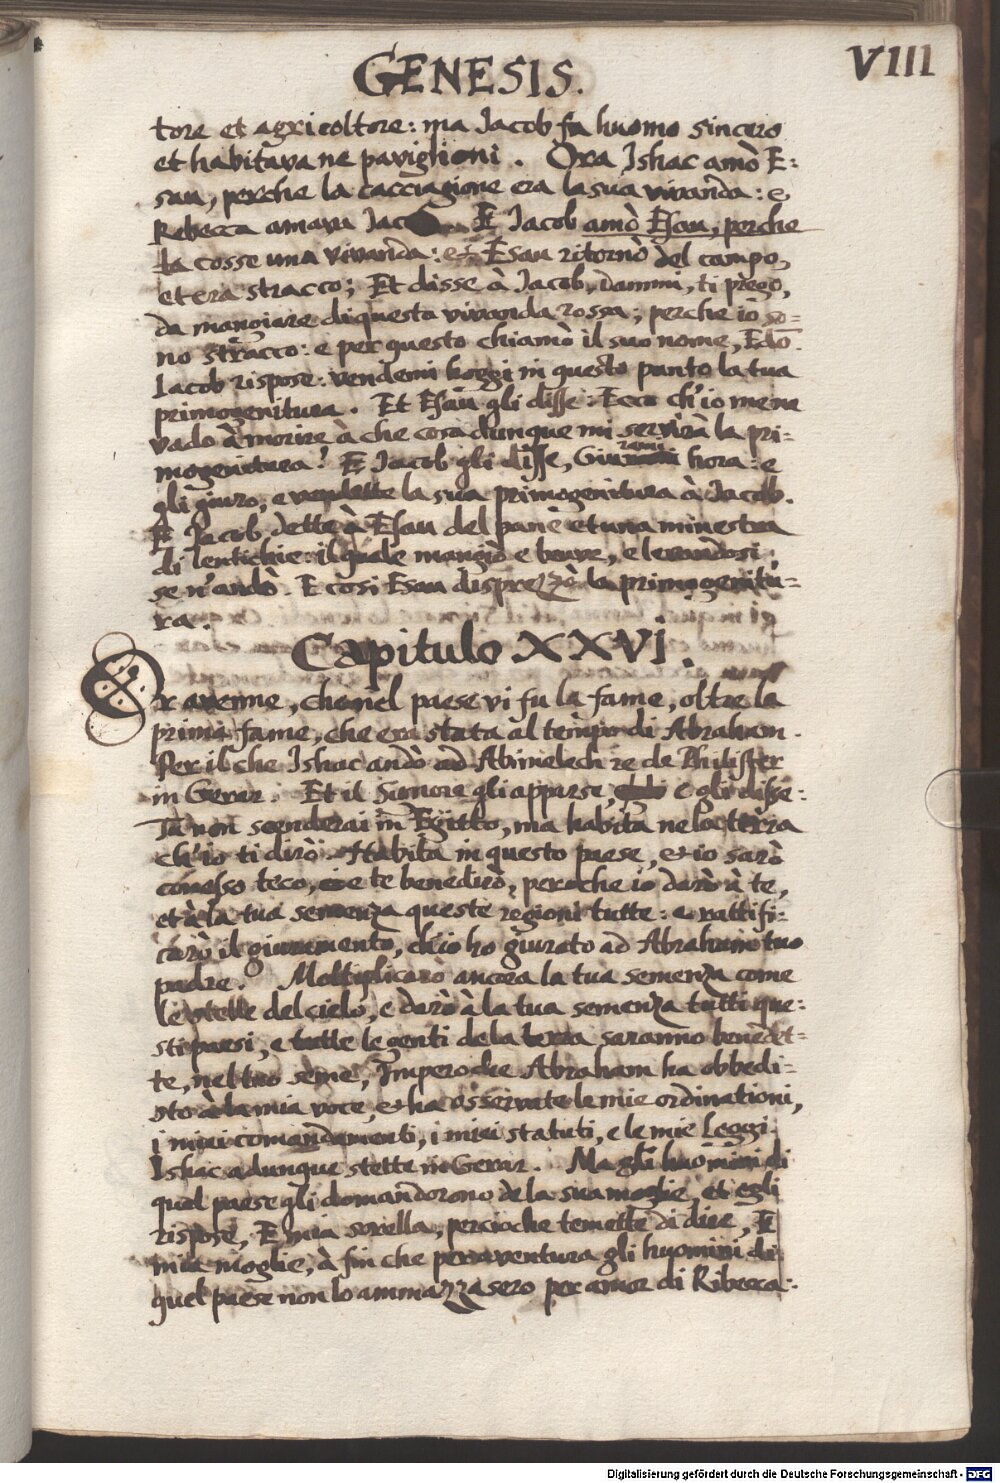 GENESIS.
VIII
tore et agricoltore: ma Jacob fu huomo sincero
et habitava ne paviglioni. Ora Ishac amò E-
sau, perche la cacciagione era la sua vivanda: e
Rebecca amava Jacob. E Jacob amò Esau, perche
la cosse una vivanda: et Esau ritornò del campo,
et era stracco; Et disse à Jacob, dammi, ti prego,
da mangiare di questa vivanda rossa; perche io so=
no stracco: e per questo chiamò il suo nome, Edō.
Iacob rispose: vendemi hoggi in questo punto la tua
primogenitura. Et Esau gli disse: Ecco ch'io mene
vado à morire à che cosa dunque mi servirà la pri=
mogenitura? E Jacob gli disse, Giurami hora: e
gli giuro, e vendette la sua primogenitura à Jacob.
E Jacob dette à Esau del pane et una minestra
di lentichie: il quale mangiò e bevve, e levandosi
se n'andò. E cosi Esau disprezzò la primogenitu=
ra.
Capitulo XXVI.
Or avenne, che nel paese vi fu la fame, oltre la
prima fame, che era stata al tempo di Abraham.
Per il che Ishac andò ad Abimelech re de Philister
in Gerar. Et il Signore gli apparse, e gli disse:
Tu non scenderai in Egitto, ma habita ne la terra
ch'io ti dirò. Habita in questo paese, et io sarò
teco, e te benedirò, peroche io darò à te,
et à la tua semenza queste regioni tutte: e rattifi=
carò il giuramento, ch'io ho giurato ad Abraham tuo
padre. Moltiplicarò ancora la tua semenza come
le stelle del cielo, e darò à la tua semenza tutti que=
sti paesi, e tutte le genti de la terra saranno benedet=
te, nel tuo seme, Imperoche Abraham ha obbedi=
sto à la mia voce, et ha osservate le mie ordinationi,
i miei comandamenti, i miei statuti, e le mie Leggi.
Ishac adunque stette in Gerar. Ma gli huomini di
quel paese gli domandorono de la sua moglie, et egli
rispose, E mia sorella, percioche temette di dire, E
mia moglie, à fin che peraventura gli huomini di
quel paese non lo ammazzasero per amor di Ribecca:
Digitalisierung gefördert durch die Deutsche Forschungsgemeinschaft - DFG